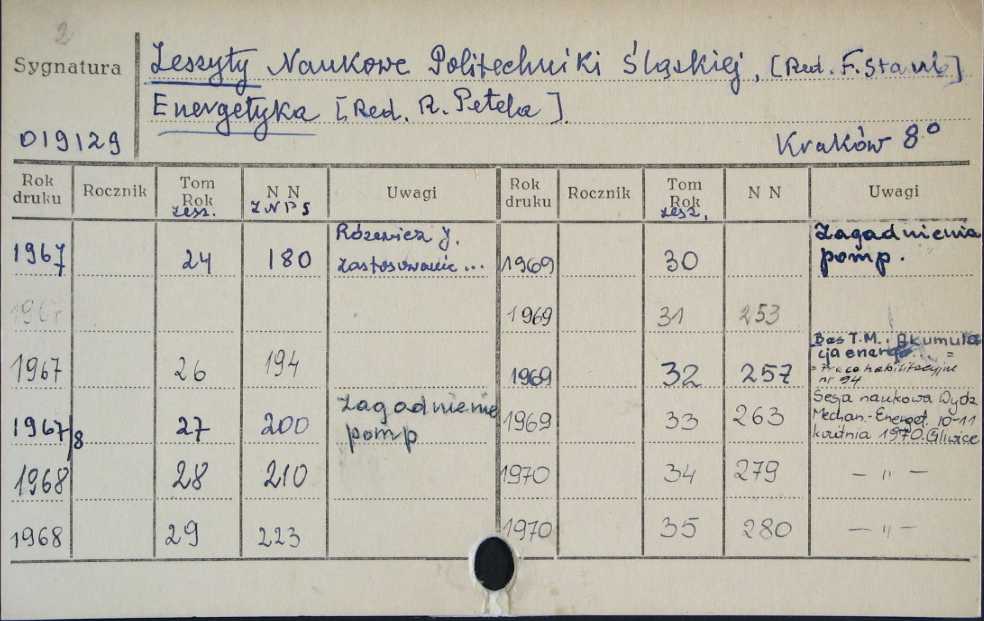 2
Sygnatura
Zeszyty Naukowe Politechniki Śląskiej, [Red. F. Stani]
Energetyka [Red. R. Petela].
019129
Kraków 8°
Rok druku Rocznik Tom Rok zesz. N N ZNPS Uwagi Rok druku Rocznik Tom Rok zesz. N N Uwagi
1967 24 180 Rózewicz J. zastosowanie... 1969 30 Zagadnienia pomp.
1967 1969 31 253
1967 26 194 1969 32 257 Bes T.M. Akumulacja energ = Praca habilitacyjna nr 94
1967/8 27 200 Zagadnienie pomp 1969 33 263 Sesja naukowa Wydz. Mechan.-Energet. 10-11 kwietnia 1970. Gliwice
1968 28 210 1970 34 279 — " —
1968 29 223 1970 35 280 — " —